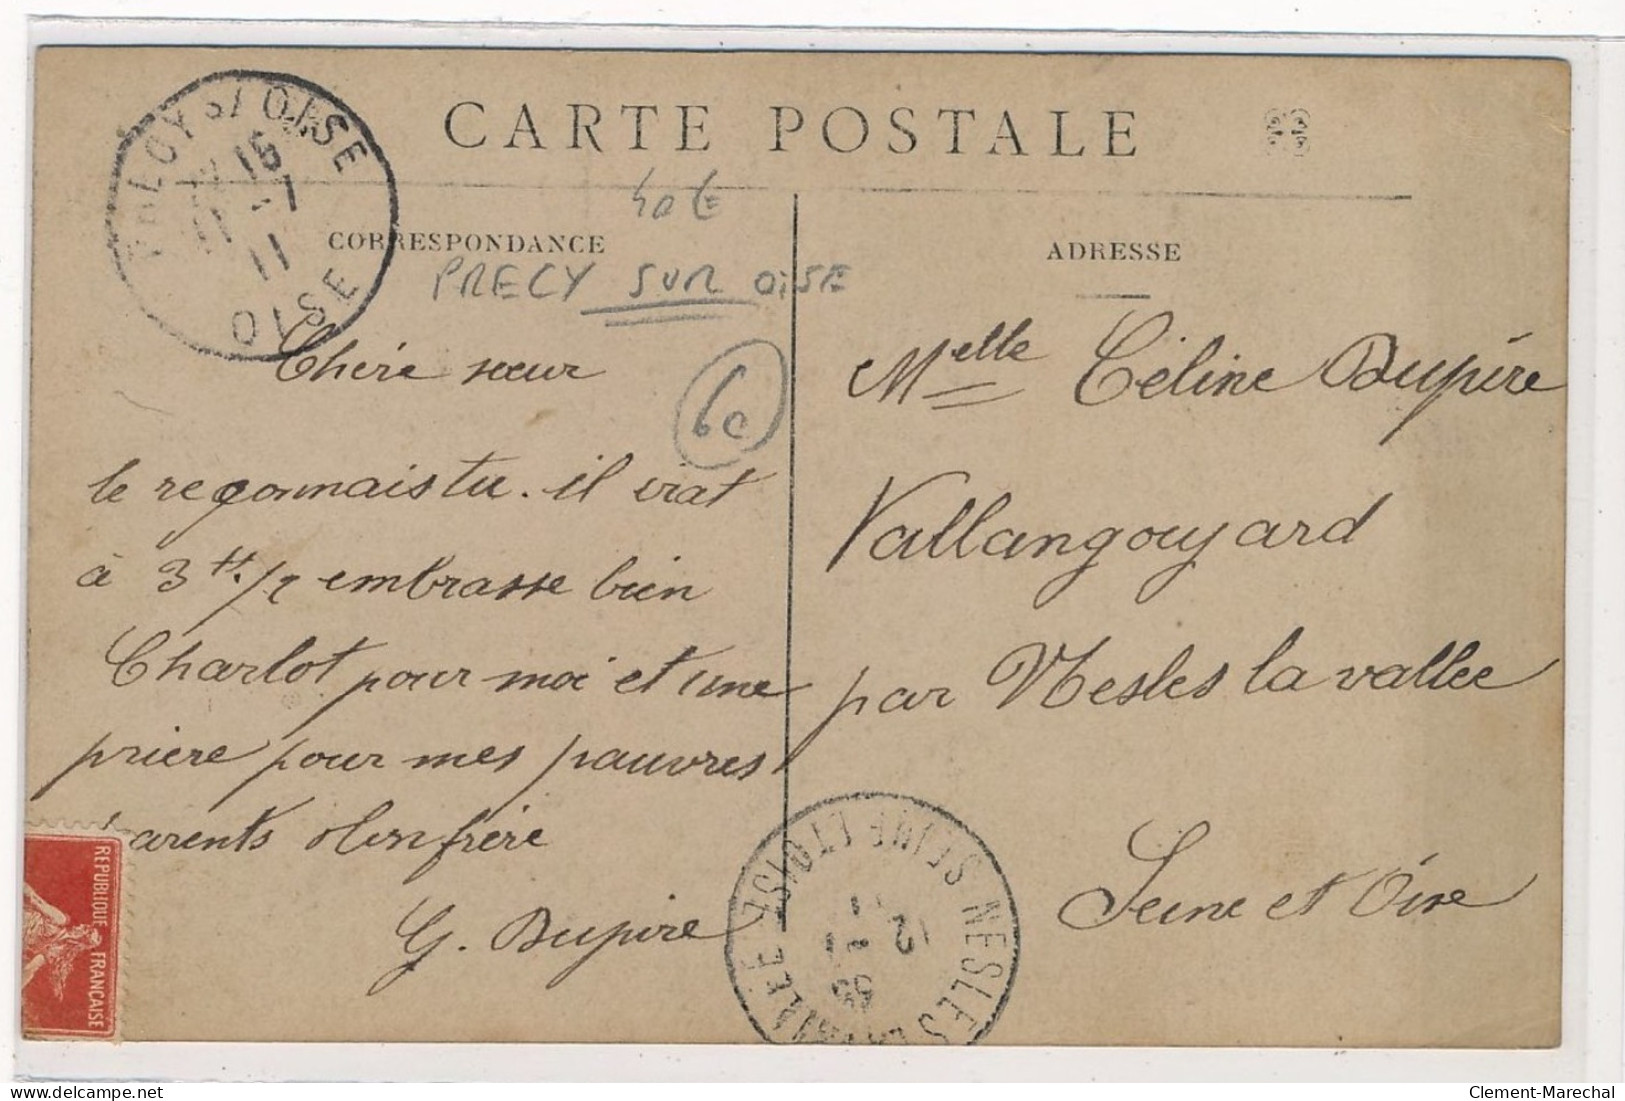 CARTE POSTALE
CORRESPONDANCE
ADRESSE
40 €
PRECY SUR OISE
60
Chère sœur
le reçonnais tu. il vrat
à 3 H. 1/2 embrasse bien
Charlot pour moi et une
prière pour mes pauvres
parents Mon frère
G. Dupire
Melle Céline Dupire
Vallangoujard
par Nesles la vallée
Seine et Oise
PRÉCY S/ OISE
15
11 -7
11
OISE
NESLES LA VALLÉE SEINE ET OISE
12
REPUBLIQUE FRANÇAISE
Clement-Marechal